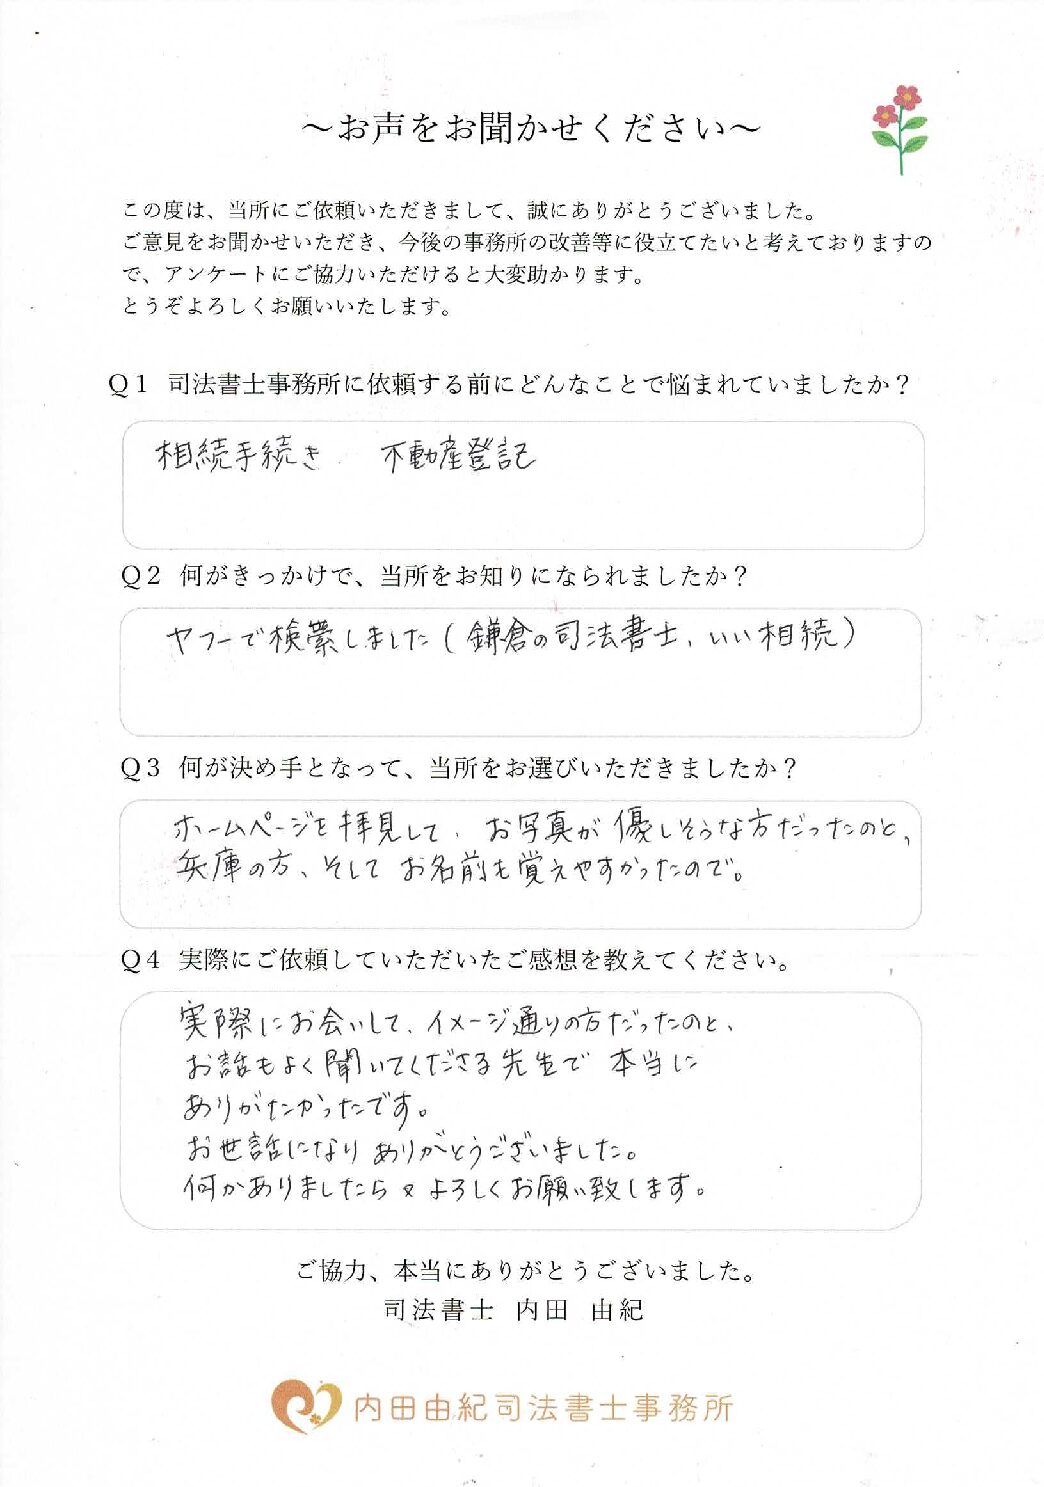 ～お声をお聞かせください～
この度は、当所にご依頼いただきまして、誠にありがとうございました。
ご意見をお聞かせいただき、今後の事務所の改善等に役立てたいと考えておりますの
で、アンケートにご協力いただけると大変助かります。
とうぞよろしくお願いいたします。
Q1 司法書士事務所に依頼する前にどんなことで悩まれていましたか？
相続手続き 不動産登記
Q2 何がきっかけで、当所をお知りになられましたか？
ヤフーで検索しました(鎌倉の司法書士、いい相続)
Q3 何が決め手となって、当所をお選びいただきましたか？
ホームページを拝見して、お写真が優しそうな方だったのと、
兵庫の方、そしてお名前も覚えやすかったので。
Q4 実際にご依頼していただいたご感想を教えてください。
実際にお会いして、イメージ通りの方だったのと、
お話もよく聞いてくださる先生で 本当に
ありがたかったです。
お世話になり ありがとうございました。
何かありましたら又よろしくお願い致します。
ご協力、本当にありがとうございました。
司法書士 内田 由紀
内田由紀司法書士事務所